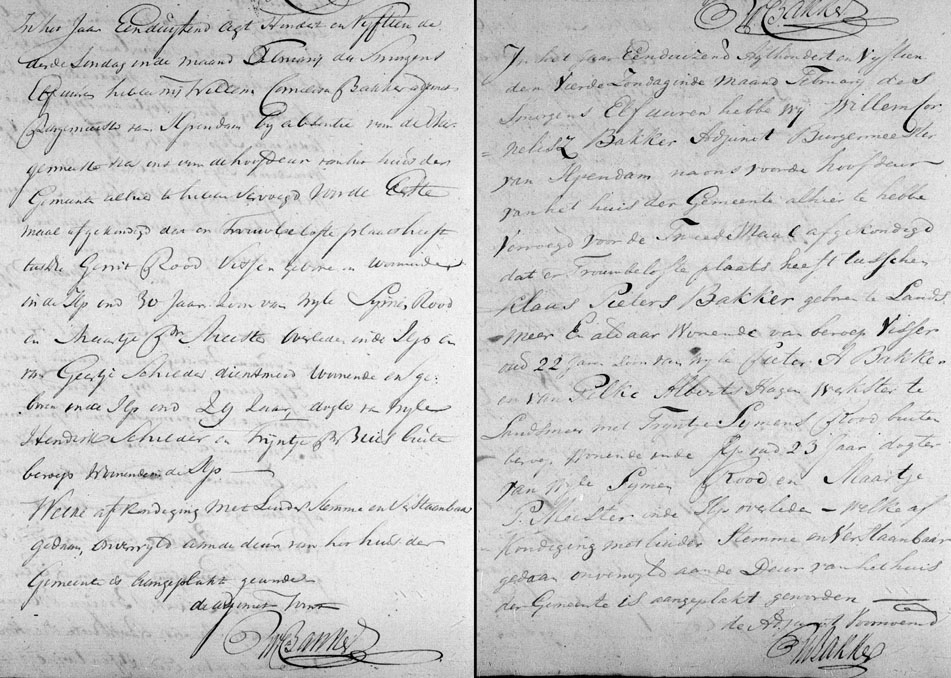 In het Jaar Eenduijsend Agt Hondert en Vijftien de
derde Sondag in de maand Februarij des Smorgens
Elf uuren hebben wij Willem Cornelisz Bakker adjunct
Burgemeester van Ilpendam bij absentie van de Bur-
gemeester na ons van de hoofdeur van het huis der
Gemeente alhier te hebben vervoegd voor de Eerste
maal afgekondigd dat er Trouwbelofte plaats heeft
tussche Gerrit Rood Visser geboren en woonende
in de Ilp oud 30 Jaar Zoon van wijle Symen Rood
en Maartje Pr Meester overleden in de Ilp en
van Geertje Schilder dienstmeid woonende en ge-
boren in de Ilp oud 29 Jaar dogter van wijle
Hendrik Schilder en Trijntje buite
beroep Woonende in de Ilp
Welke afkondeging met Luider Stemme en Verstaanbaar
gedaan, onverwyld aan de deur van het huis der
Gemeente is Aangeplakt geworde
de adjunct
WBakker
WCBakker
In het jaar Eenduizend Agthondert en Vyftien
den Vierde Zondag in de maand February des
Smorgens Elf uuren hebbe wij Willem Cor-
nelisz Bakker Adjunct Burgermeester
van Ilpendam na ons voor de hoofdeur
van het huis der Gemeente alhier te hebbe
Vervoegd voor de Tweede Maal afgekondegd
dat er Trouwbelofte plaats heeft tusschen
Klaas Pieters Bakker geboren te Lands
meer En aldaar Wonende van beroep Visser
oud 22 Jaar Zoon van wyle Pieter A Bakker
en van Pelke Alberts Hagen Werkster te
Landsmeer met Tryntje Symens Rood buiten
beroep Wonende in de Ilp oud 23 Jaar dogter
van wyle Symen Rood en Maartje
P. Meester in de Ilp overleden – welke af
Kondiging met luider Stemme en Verstaanbaar
gedaan onverwyld aan de Deur van het huis
der Gemeente is aangeplakt geworden
de Adjunct Voornoemd
WBakker